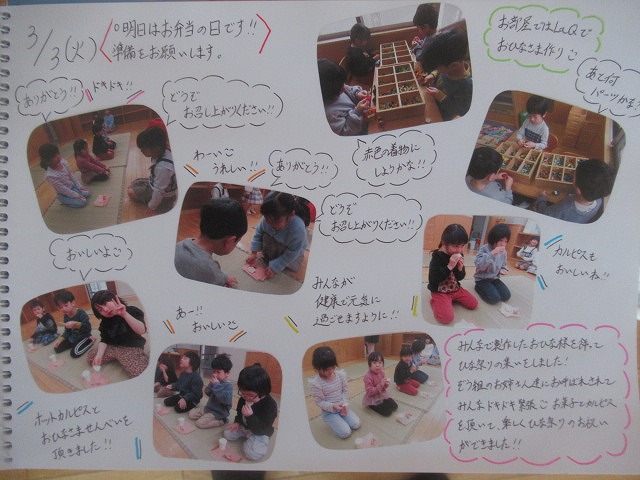 3/3(火)
○明日はお弁当の日です!!
準備をお願いします。
お部屋ではLaQで
おひなさま作り♡
あと何
パーツかな
ありがとう!!
ドキドキ!!
どうぞ
お召し上がりください!!
赤色の着物に
しようかな!!
わーい♡
うれしい!!
ありがとう!!
どうぞ
お召し上がりください!!
おいしいよ♡
カルピスも
おいしいね!!
みんなが
健康で元気に
過ごせますように!!
あー!!
おいしい♡
ホットカルピスと
おひなさませんべいを
頂きました!!
みんなで製作したおひな様を持って
ひな祭りの集いをしました!
ぞう組のお姉さん達にお呼ばれされて
みんなドキドキ緊張♡お菓子とカルピス
を頂いて、楽しくひな祭りのお祝い
ができました!!